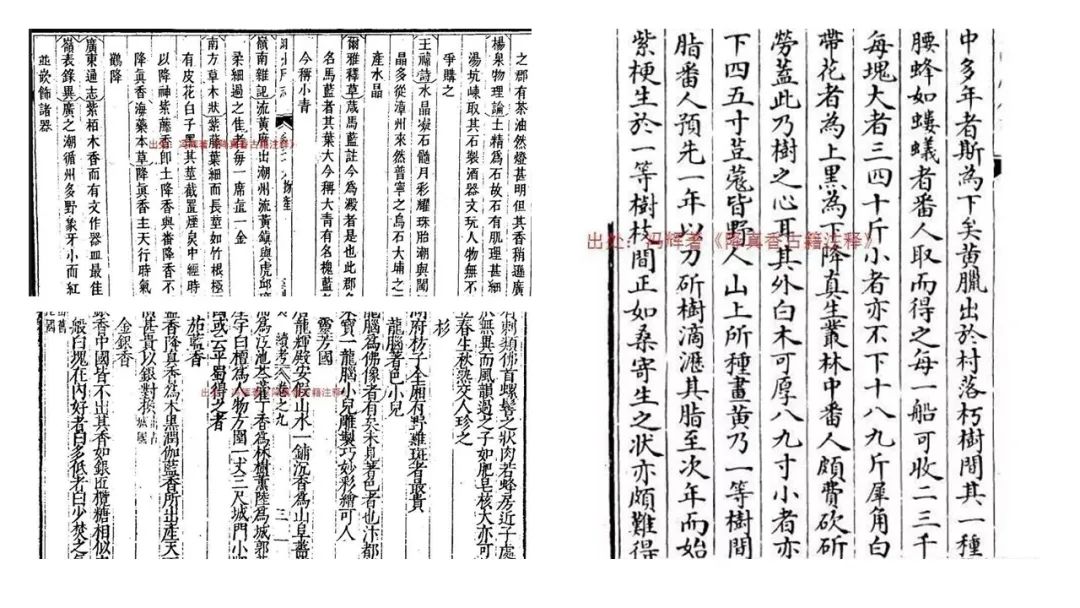 之郡有茶油然燈甚明但其香稍遜廣
楊泉物理論土精爲石故石有肌理甚細
湯坑峽取其石製酒器文玩人物無不
爭購之
詩水晶凝石髓月彩耀珠胎潮與閩
晶多從漳州來然普寧之烏石大埔之
產水晶
爾雅釋草葴馬藍註今爲澱者是也此郡
名馬藍者其葉大今稱大青有名槐藍者
今稱小青
嶺南雜記流黃席出潮州流黃鎮與虎邱
柔細過之佳者每一席直一金
南方草木狀紫藤葉細而長莖如竹根極
有皮花白子黑其莖截置煙炱中經時
以降神紫藤香卽土降香與番降香不
降眞香海藥本草降眞香主天行時氣
鸛降
廣東通志紫栢木香而有文作器皿最佳
嶺表錄異廣之潮循州多野象牙小而紅
並嵌飾諸器
出处：冯辉著《降真香古籍注释》
有刺類佛首螺髻之狀肉若蜂房近子處
於無異而風韻過之子如肥皂核大亦可
春生秋熟交人珍之
杉
府枋子全廂有野雞斑者最貴
龍腦著色小兒
龍腦爲佛像者有矣未見著色者也汴都
宋寶一龍腦小兒雕製巧妙彩繪可人
靈芳國
龍輝殿安假山水一鋪沉香爲山阜薔
爲江池苓藿丁香爲林樹薰陸爲城郭
白檀爲人物方圍一丈三尺城門小
或云平蜀得之者
續考 卷之九
三
茄藍香
藍香降真香爲木黑潤伽藍香所出產天
甚貴以銀對換
金銀香
銀香中國皆不出其香如銀匠欖糖相似
般白塊在內好者白多低者白少焚之
出处：冯辉著《降真香古籍注释》
中多年者斯為下矣黃臘出於村落朽樹間其一種
腰蜂如螻蟻者番人取而得之每一船可收二三千
每塊大者三四十斤小者亦不下十八九斤犀角白
帶花者為上黑為下降真生叢林中番人頗費砍斫
勞蓋此乃樹之心耳其外白木可厚八九寸小者亦
下四五寸荳蔻皆野人山上所種畫黃乃一等樹間
脂番人預先一年以刀斫樹滴瀝其脂至次年而始
紫梗生於一等樹枝間正如桑寄生之狀亦頗難得
出处：冯辉著《降真香古籍注释》